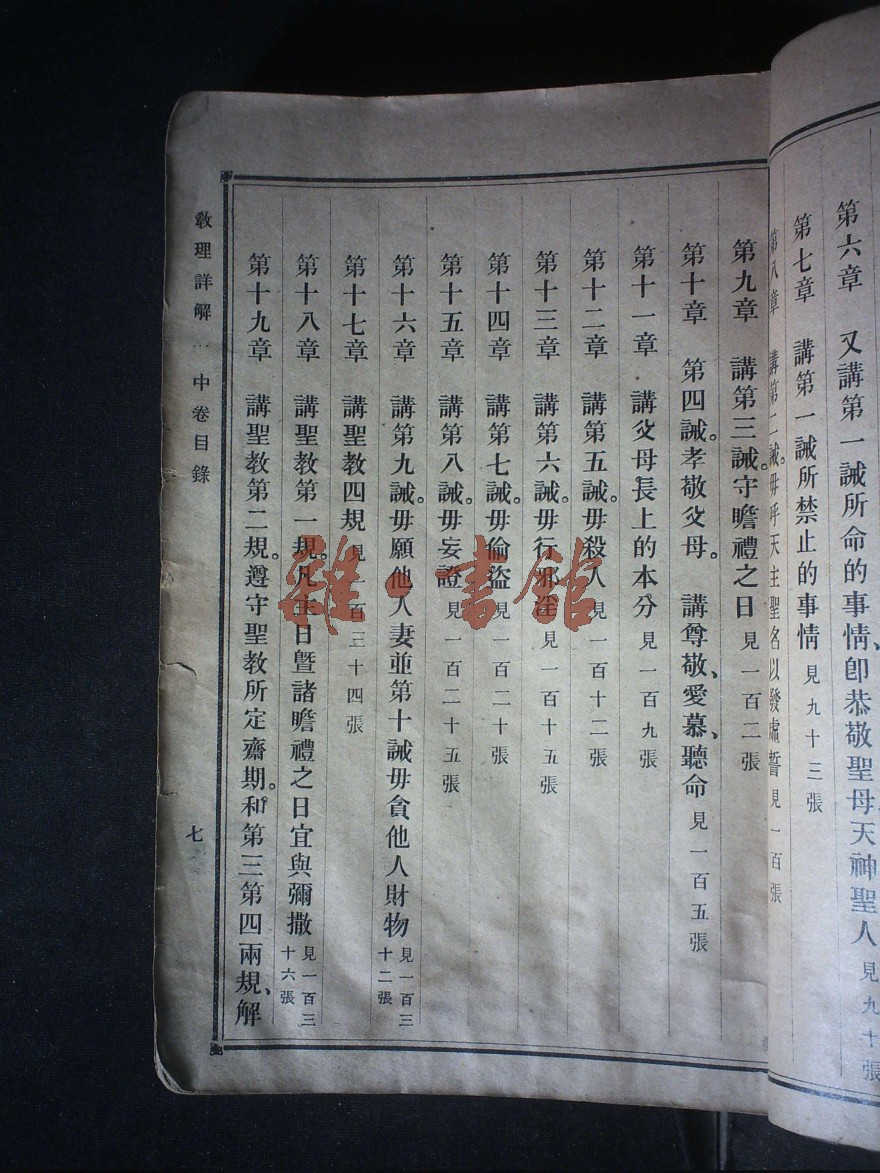 第六章　又講第一誡所命的事情、卽恭敬聖母天神聖人見九十張
第七章　講第一誡所禁止的事情見九十三張
第八章　講第二誡。毋呼天主聖名以發虛誓見一百張
第九章　講第三誡。守瞻禮之日見一百二張
第十章　第四誡。孝敬父母。講尊敬、愛慕、聽命見一百五張
第十一章　講父母長上的本分見一百九張
第十二章　講第五誡。毋殺人見一百十二張
第十三章　講第六誡。毋行邪淫見一百十五張
第十四章　講第七誡。毋偷盜見一百二十張
第十五章　講第八誡。毋妄證見一百二十五張
第十六章　講第九誡。毋願他人妻並第十誡毋貪他人財物見一百三十二張
第十七章　講聖教四規見一百三十四張
第十八章　講聖教第一規。凡主日暨諸瞻禮之日宜與彌撒見一百三十六張
第十九章　講聖教第二規。遵守聖教所定齋期。和第三第四兩規、解
教理詳解　中卷目錄　七
雜·書館